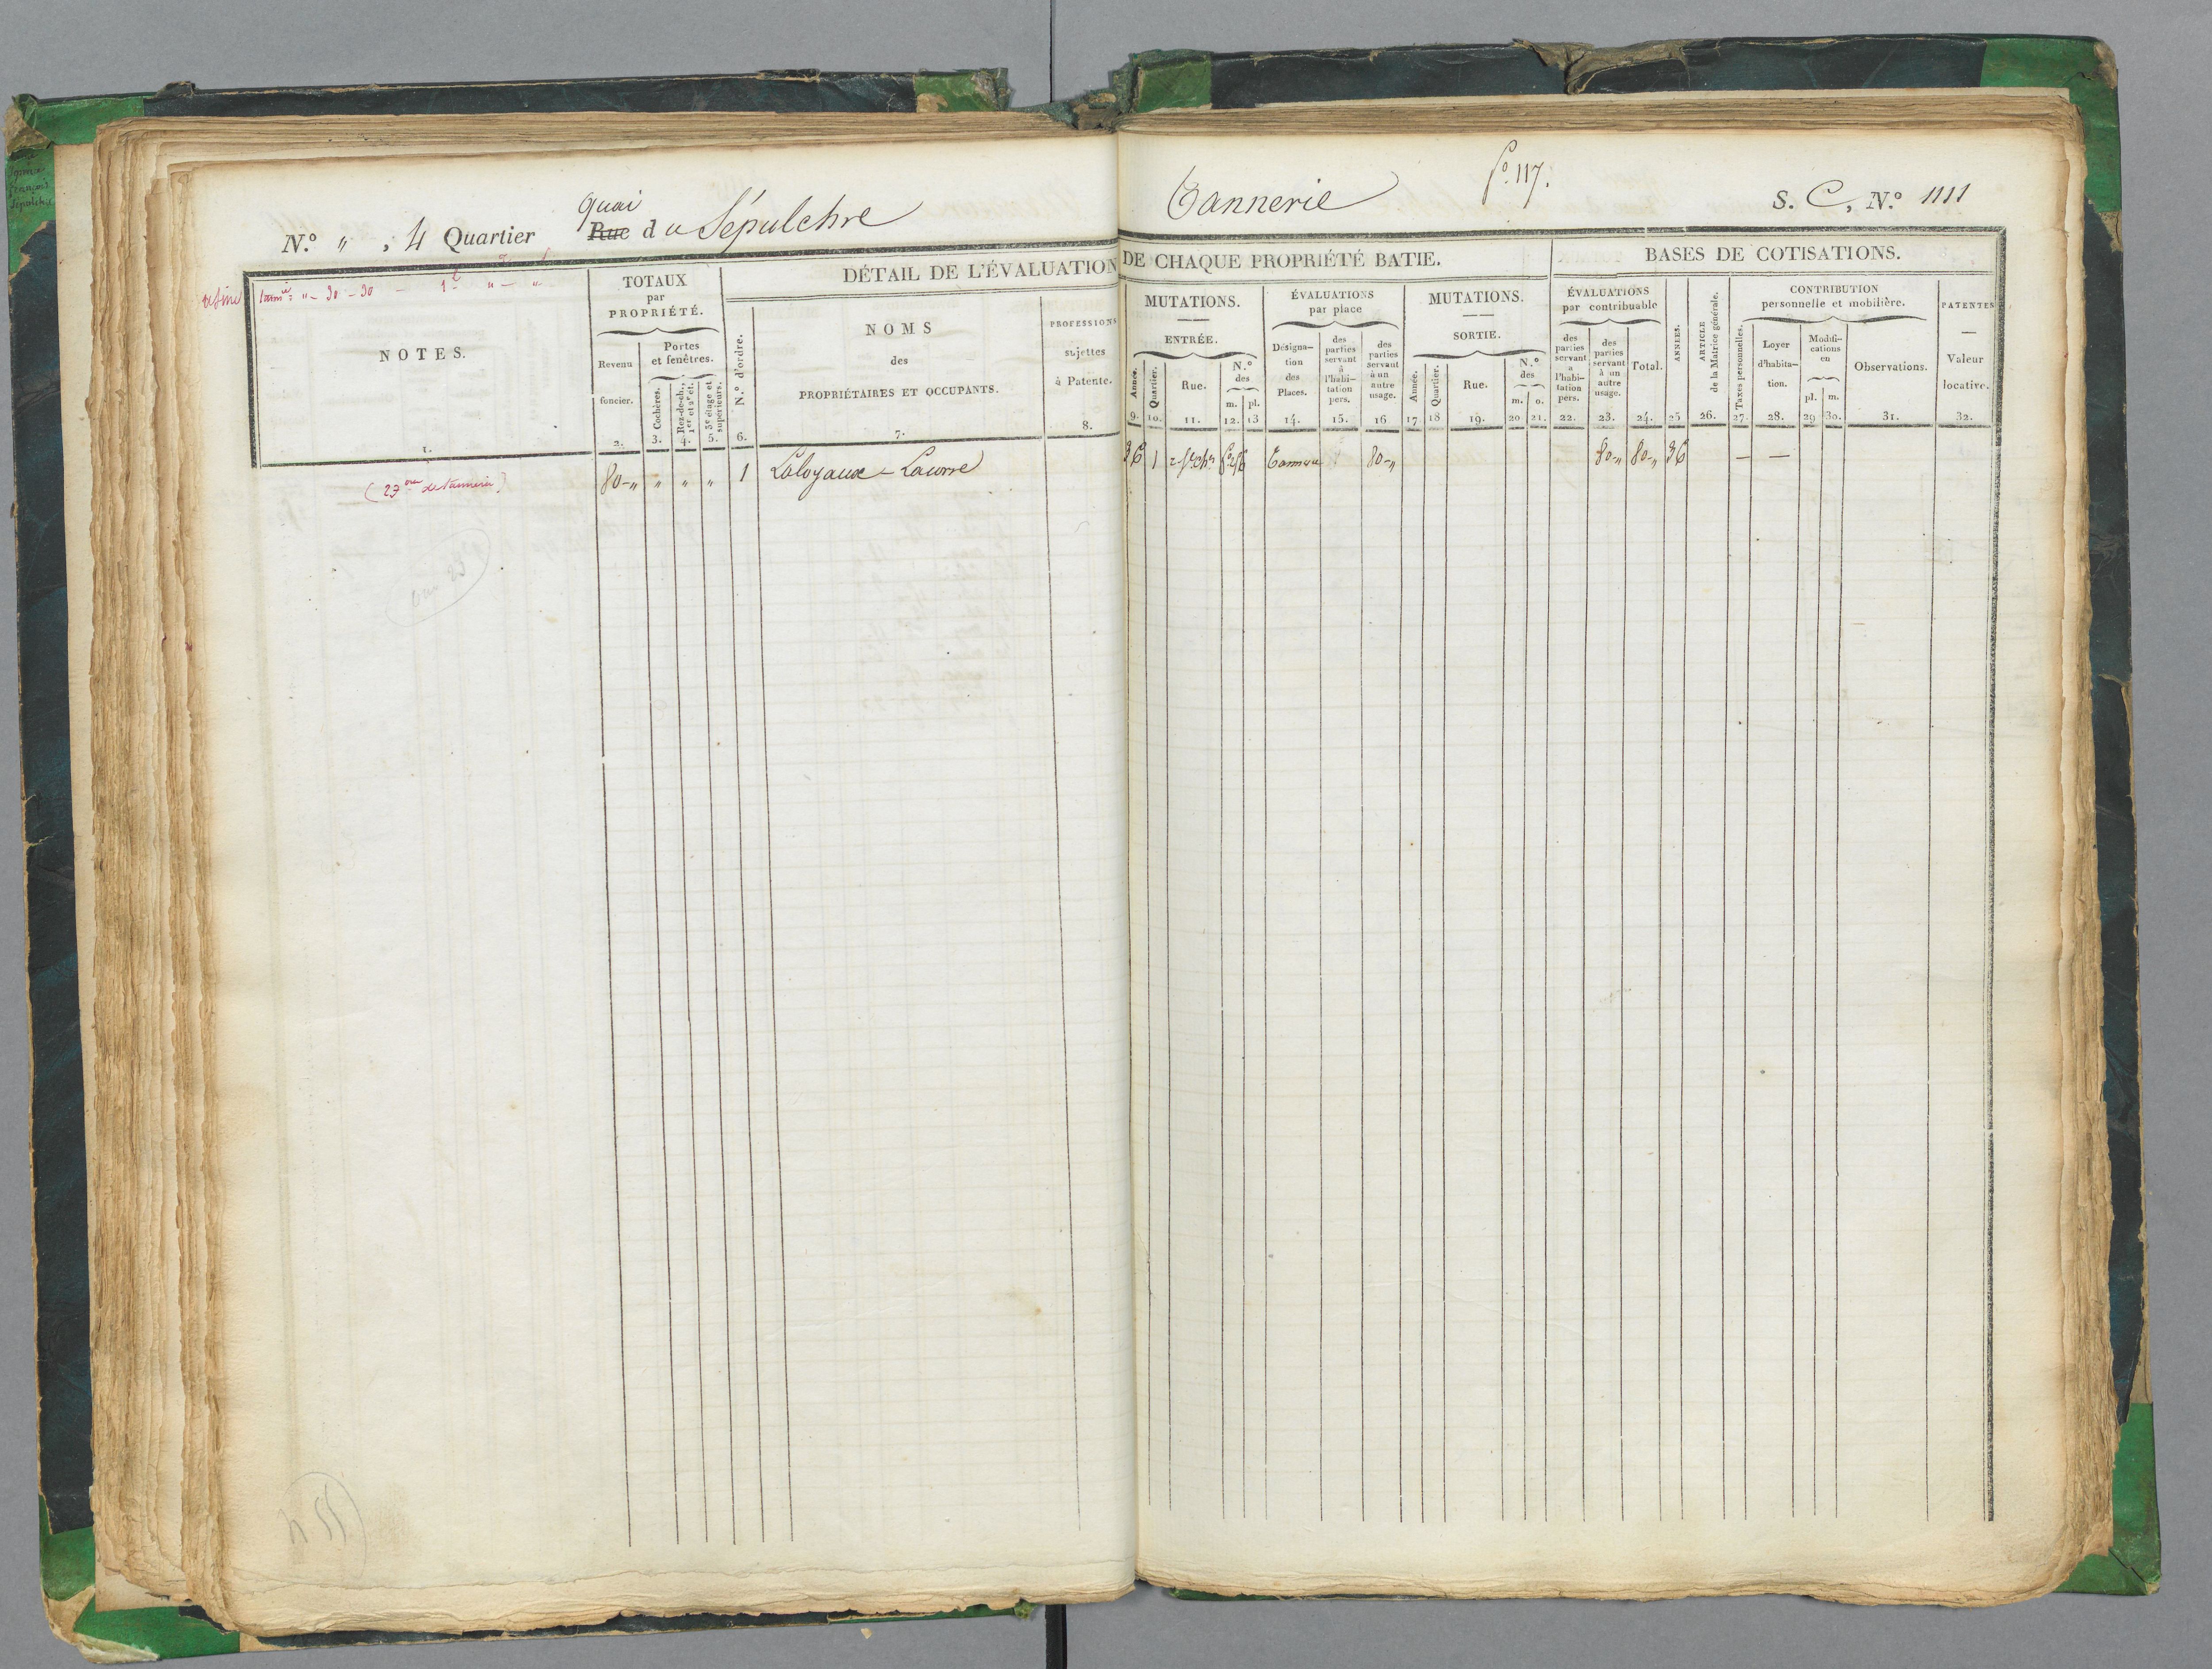 quai
N.º " , 4 Quartier Rue du Sépulchre
Tannerie
fº 117.
S. C, N.º 1111
usine
" - 30 - 30 - " - "
NOTES.
1.
TOTAUX
par
PROPRIÉTÉ.
Revenu
foncier.
2.
Portes
et fenêtres.
Cochères.
3.
Rez-de-ch.,
1er et 2e ét.
4.
3e étage et
supérieurs.
5.
DÉTAIL DE L'ÉVALUATION DE CHAQUE PROPRIÉTÉ BATIE.
N.º d'ordre.
6.
NOMS
des
PROPRIÉTAIRES ET OCCUPANTS.
7.
PROFESSIONS
sujettes
à Patente.
8.
MUTATIONS.
ENTRÉE.
Année.
9.
Quartier.
10.
Rue.
11.
N.º
des
m.
12.
pl.
13
ÉVALUATIONS
par place
Désigna-
tion
des
Places.
14.
des
parties
servant
à
l'habi-
tation
pers.
15.
des
parties
servant
à un
autre
usage.
16
MUTATIONS.
SORTIE.
Année.
17
Quartier.
18
Rue.
19.
N.º
des
m.
20
o.
21.
BASES DE COTISATIONS.
ÉVALUATIONS
par contribuable
des
parties
servant
a
l'habi-
tation
pers.
22.
des
parties
servant
à un
autre
usage.
23.
Total.
24.
ANNÉES.
25
ARTICLE
de la Matrice générale.
26.
CONTRIBUTION
personnelle et mobilière.
Taxes personnelles.
27.
Loyer
d'habita-
tion.
28.
Modifi-
cations
en
pl.
29
m.
30.
Observations.
31.
PATENTES
Valeur
locative.
32.
80-" " " " 1 Laloyaux - Lacorre
36 1 80-" 80-" 80-" 36 — —